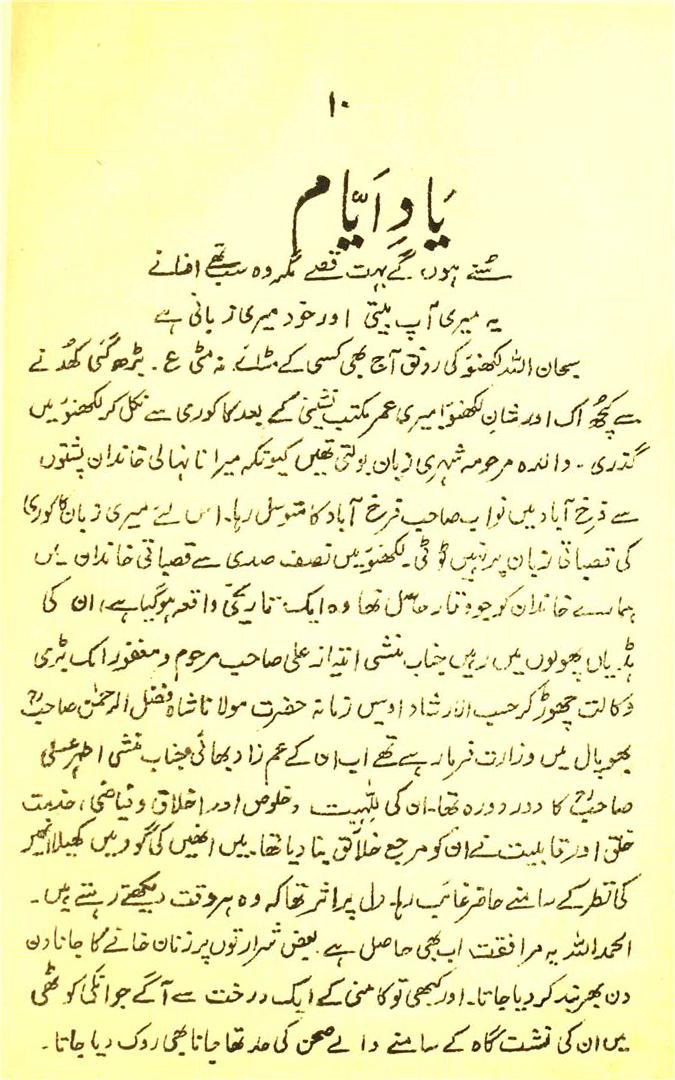 ۱۰
یَادِ اَیّام
سُنے ہوں گے بہت قصے مگر وہ سب تھے افسانے
یہ میری آپ بیتی اور خود میری زبانی ہے
سبحان اللہ لکھنؤ کی رونق آج بھی کسی کے مٹائے نہ مٹی ع ۔ بڑھ گئی کھُدنے
سے کچھ اک اور شانِ لکھنؤ! میری عمر مکتب نشینی کے بعد کاکوری سے نکل کر لکھنؤ میں
گذری ۔ والدہ مرحومہ شہری زبان بولتی تھیں کیونکہ میرا نانہالی خاندان پشتوں
سے فرخ آباد میں نواب صاحب فرخ آباد کا متوسل رہا۔ اس لئے میری زبان کاکوری
کی قصباتی زبان پر نہیں ٹوٹی۔ لکھنؤ میں نصف صدی سے قصباتی خاندان میں
ہمارے خاندان کو جو وقار حاصل تھا وہ ایک تاریخی واقعہ ہو گیا ہے، ان کی
ہڈیاں پھولوں میں رہیں جناب منشی امتیاز علی صاحب مرحوم و مغفور اک بڑی
وکالت چھوڑ کر حسب الارشاد اویس زمانہ حضرت مولانا شاہ فضل الرحمٰن صاحبؒ
بھوپال میں وزارت فرما رہے تھے اب ان کے عم زاد بھائی جناب منشی اطہر علی
صاحبؒ کا دور دورہ تھا۔ ان کی للّٰہیت و خلوص اور اخلاق و فیاضی، خدمت
خلق اور قابلیت نے ان کو مرجع خلائق بنا دیا تھا۔ میں انھیں کی گود میں کھیلا انھیں
کی نظر کے سامنے حاضر غائب رہا۔ دل پر اثر تھا کہ وہ ہر وقت دیکھتے رہتے ہیں۔
الحمد اللہ یہ مرافقت اب بھی حاصل ہے۔ بعض شرارتوں پر زنان خانے کا جانا دن
دن بھر بند کر دیا جاتا۔ اور کبھی تو کامنی کے ایک درخت سے آگے جو انکی کوٹھی
میں ان کی نشست گاہ کے سامنے والے صحن کی حد تھا جانا بھی روک دیا جاتا۔